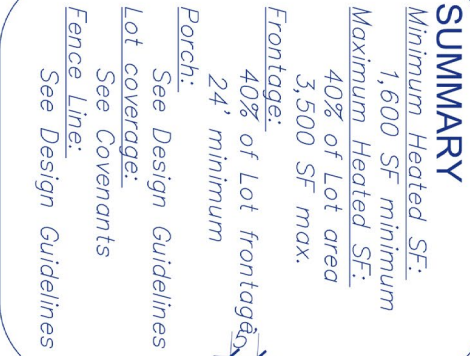 SUMMARY
Minimum Heated SF:
1,600 SF minimum
Maximum Heated SF:
40% of Lot area
3,500 SF max.
Frontage:
40% of Lot frontage
24' minimum
Porch:
See Design Guidelines
Lot coverage:
See Covenants
Fence Line:
See Design Guidelines